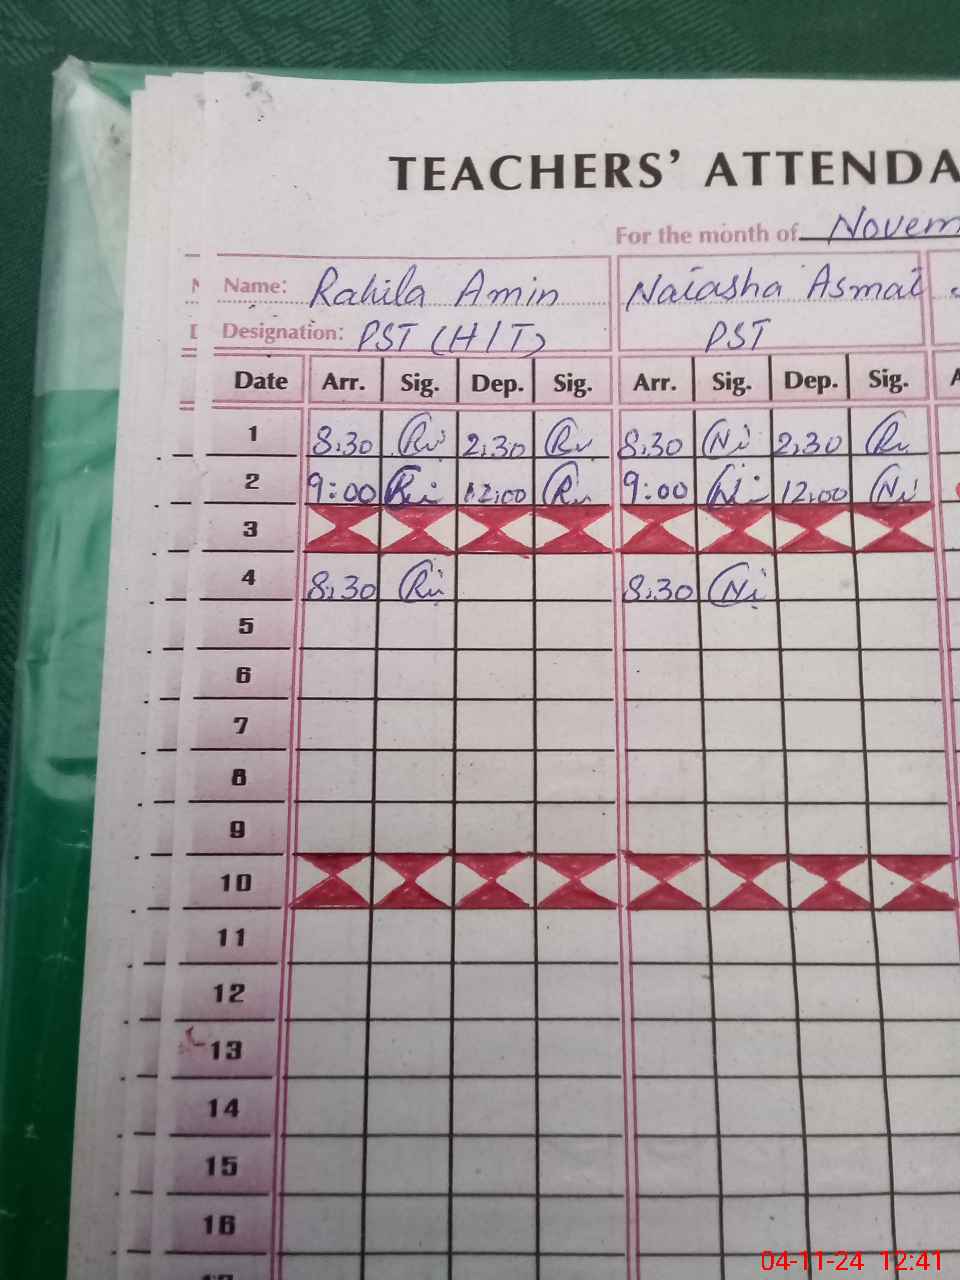 TEACHERS' ATTENDA
For the month of Novem
Name: Rahila Amin Naiasha Asmat
Designation: PST (H/T) PST
Date Arr. Sig. Dep. Sig. Arr. Sig. Dep. Sig.
1 8:30 Ri 2:30 Ri 8:30 Ni 2:30 Ri
2 9:00 Ri 12:00 Ri 9:00 Ni 12:00 Ni
3
4 8:30 Ri 8:30 Ni
5
6
7
8
9
10
11
12
13
14
15
16
04-11-24 12:41